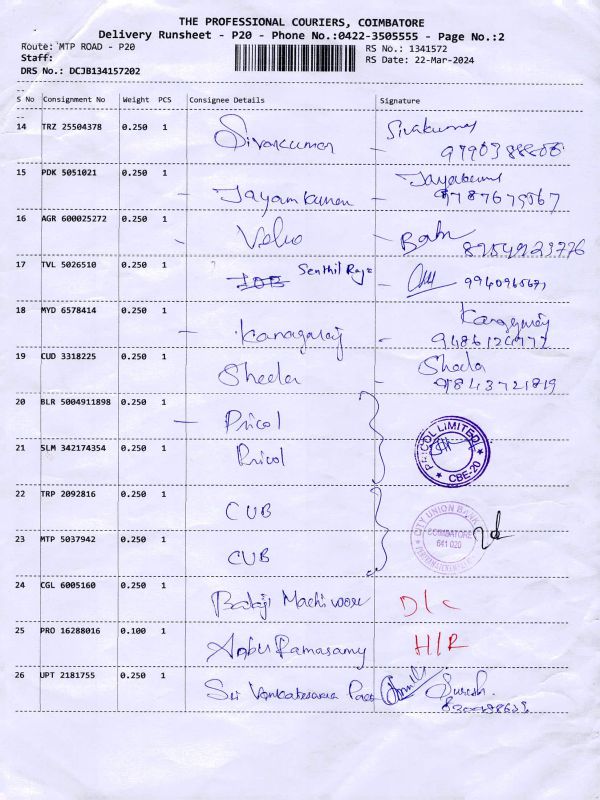 THE PROFESSIONAL COURIERS, COIMBATORE
Delivery Runsheet - P20 - Phone No.:0422-3505555 - Page No.:2
Route: MTP ROAD - P20 RS No.: 1341572
Staff: RS Date: 22-Mar-2024
DRS No.: DCJB134157202
S No Consignment No Weight PCS Consignee Details Signature
14 TRZ 25504378 0.250 1 Sivakumar Sivakumar
15 PDK 5051021 0.250 1 Jayamkumar
16 AGR 600025272 0.250 1 Babu
17 TVL 5026510 0.250 1 IOB Senthil Raja
18 MYD 6578414 0.250 1 Kanagaraj Kanagaraj
19 CUD 3318225 0.250 1 Sheela Sheela
9843721819
20 BLR 5004911898 0.250 1 Pricol
21 SLM 342174354 0.250 1 Pricol
PRICOL LIMITED CBE-20
22 TRP 2092816 0.250 1 CUB
CITY UNION BANK
COIMBATORE
641 020
23 MTP 5037942 0.250 1 CUB
24 CGL 6005160 0.250 1 Balaji D/c
25 PRO 16288016 0.100 1 Anbu Ramasamy H/R
26 UPT 2181755 0.250 1 Sri Venkateswara Suresh